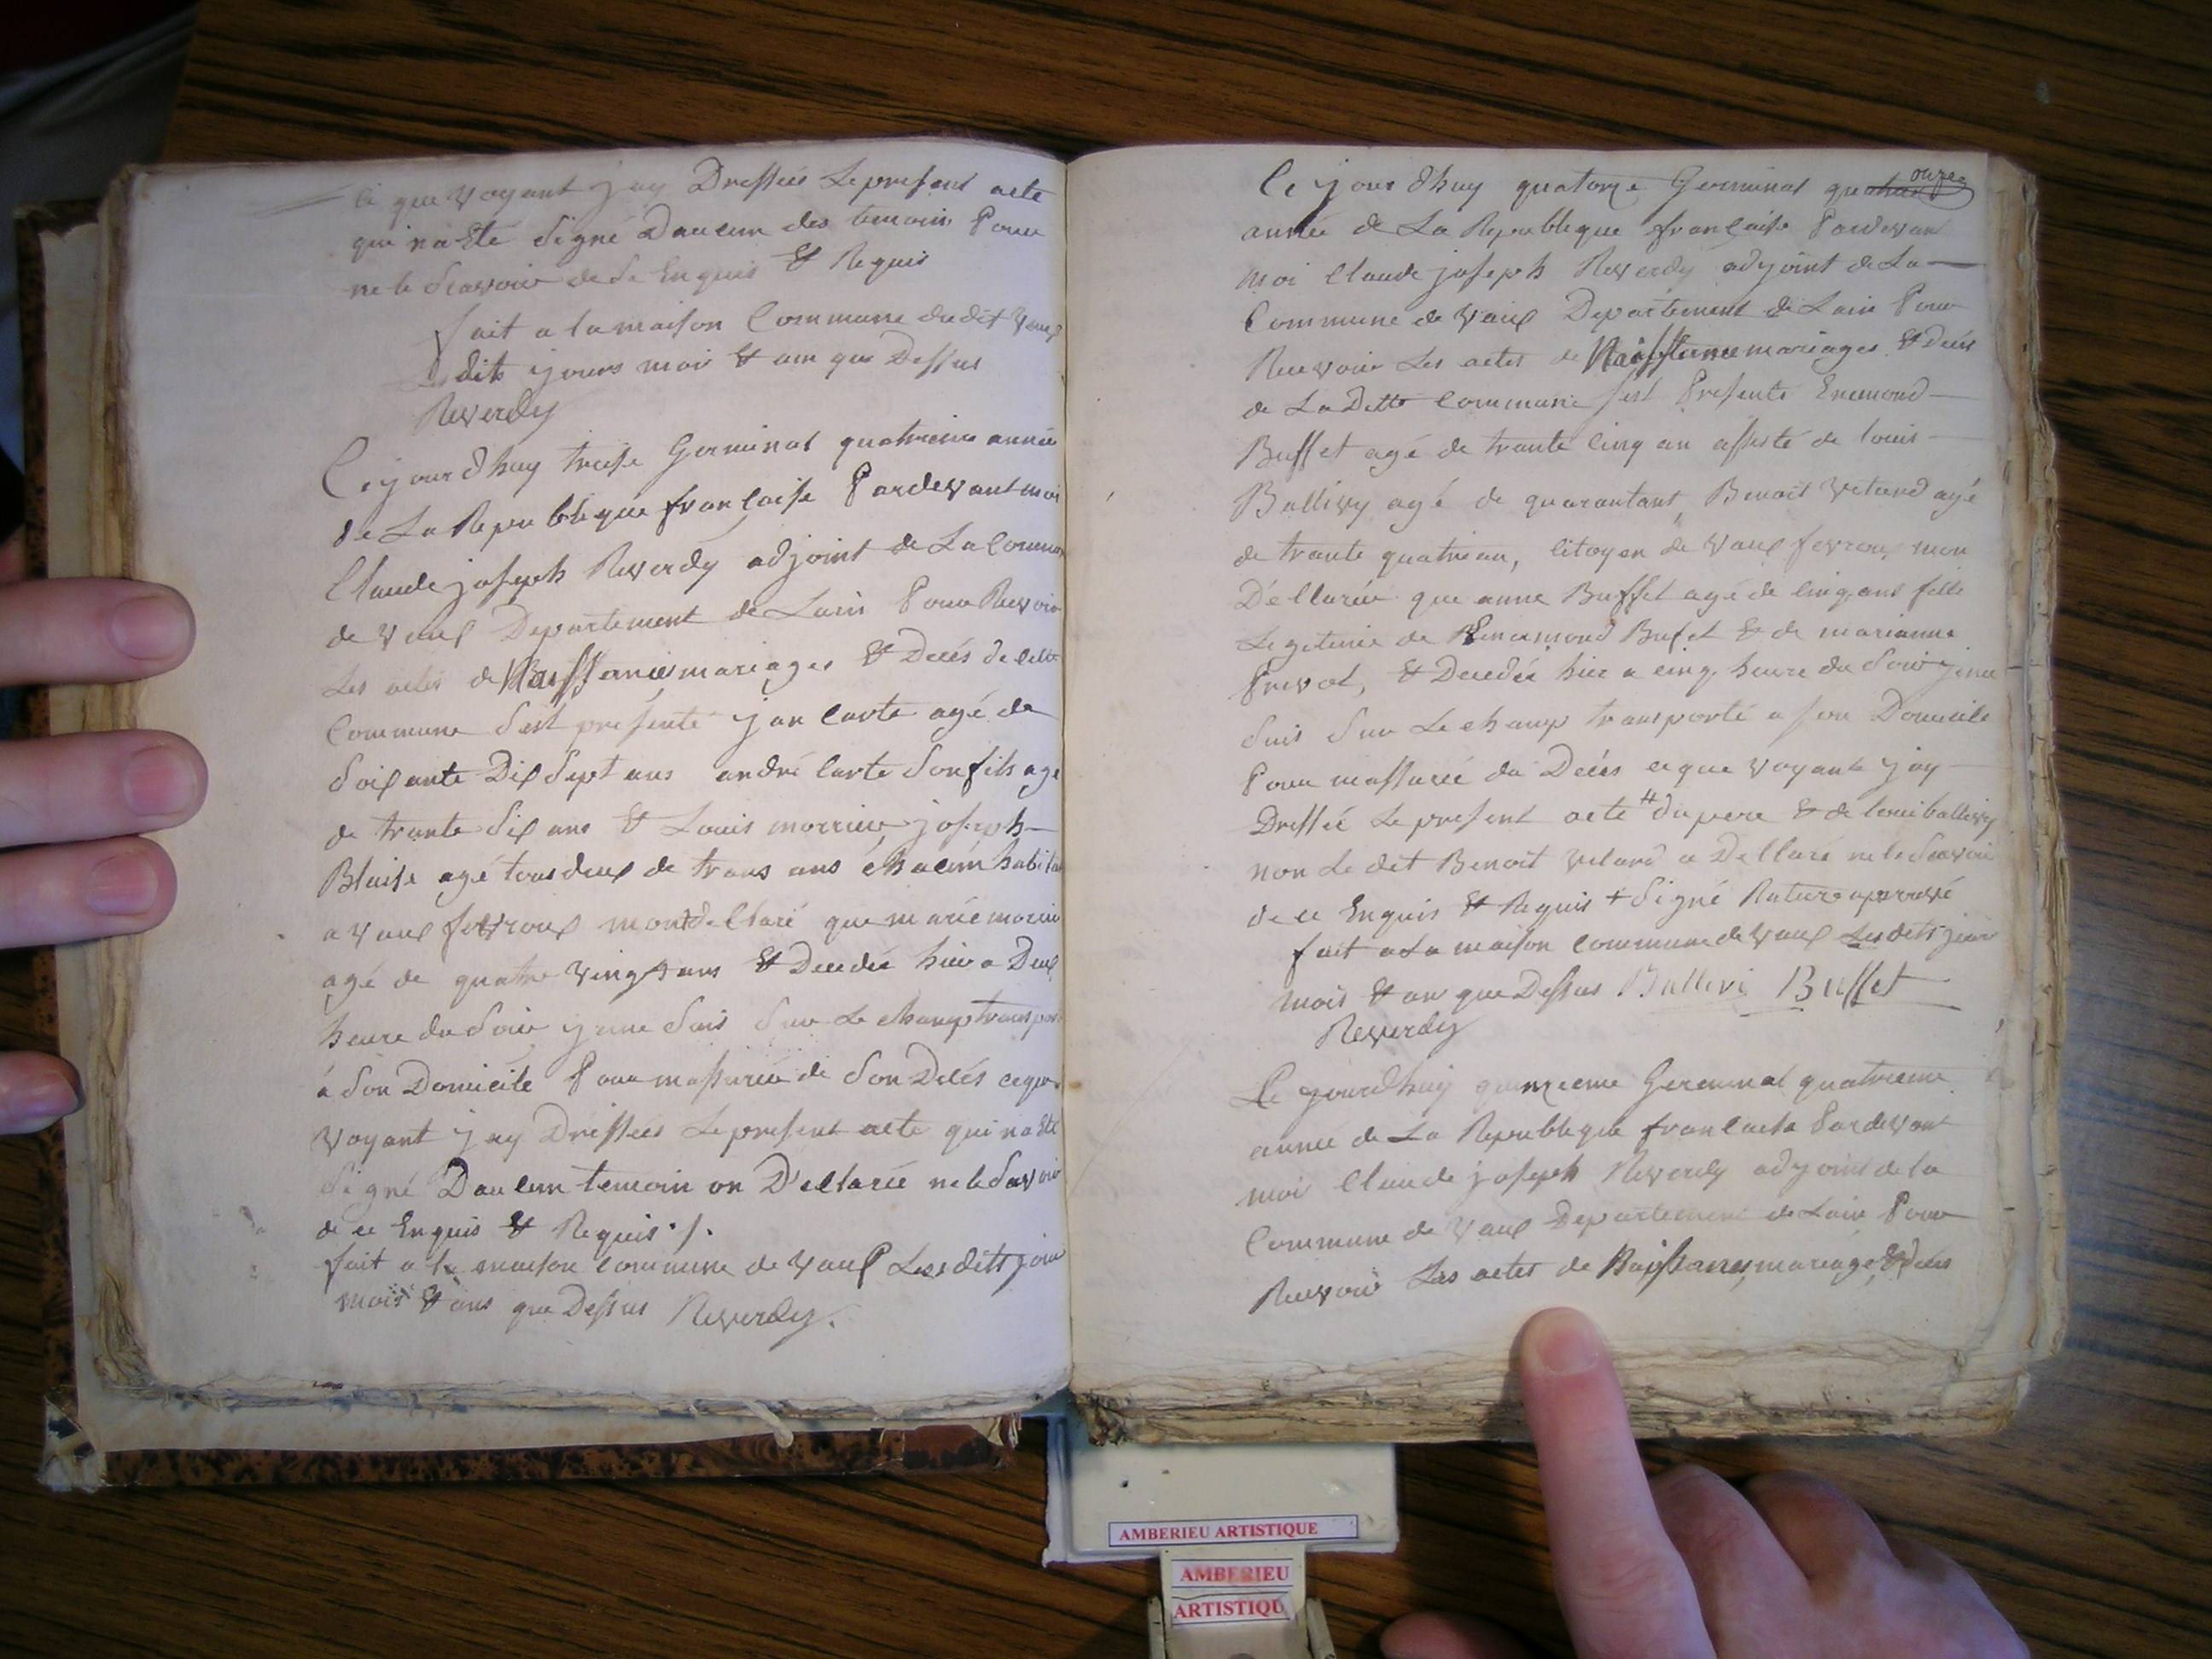 ce que voyant jay Dressees Le present acte
qui na Eté Signé Daucun des temoins Pour
ne le Scavoir de Se Enquis & Requis
fait a la maison Commune du dit Vaux
Les dits jours mois & am que Dessus
Reverdy
Ce jourdhuy treise Germinal quatrieme année
de La Republique francaise Pardevant moi
Claude joseph Reverdy adjoint de La Commun
de Vaux Departement de Lain Pour Recevoir
Les actes de Naissance mariages & Decés de cette
Commune Sest presente jan Carte agé de
Soixante Dix Sept ans andré Carte Son fils age
de trante Six ans & Louis morrine joseph
Blaise agé tous deux de trans ans chacun habitan
a Vaux fevroux mont declaré que marie morin
agé de quatre Vingt ans & Decedée hier a Deux
heure du Soir je me Suis Sur Le champ transpor
á Son Domicile Pour massuree de Son Decés ceque
Voyant jay Dressees Le present acte qui na Eté
Signé Daucun temoin on D'eclarée ne le Savoir
de ce Enquis & Requis ./.
fait a la maison Commune de Vaux Les dits jour
mois & ans que Dessus Reverdy.
Ce jour dhuy quatorze Germinal onze
année de La Republique francaise Pardevant
moi Claude joseph Reverdy adjoint de La
Commune de Vaux Departement de Lain Pour
Recevoir Les actes de Naissance mariages & Decés
de La Ditte Commune Sest Presente Enemond
Buffet agé de trante Cinq an assisté de Louis
Ballivy agé de quarantant Benoit Vetard agé
de trante quatrean, Citoyen de Vaux fevroux mon
Déclarée que anne Buffet agé de Cinq ans fille
Legetimée de Enemond Bufet & de marianne
Privot, & Decedée hier a cinq heure du Soir je me
Suis Sur Le champ transporté a Son Domicile
Pour massuree du Decés ceque Voyant jay
Dressée Le present acte # du pere & de loui ballivy
non Le dit Benoit Vetard a Dellaré ne le Scavoir
de ce Enquis & Requis + Signé Rature aprouvé
fait a La maison Commune de Vaux Les dits jour
mois & an que Dessus Ballivi Buffet
Reverdy
Ce jourdhuy quinzieme Germinal quatrieme
année de La Republique francaise Pardevant
moi Claude joseph Reverdy adjoint de la
Commune de Vaux Departement de Lain Pour
Recevoir Les actes de Naissances, mariage & Deces
AMBERIEU ARTISTIQUE
AMBERIEU
ARTISTIQU